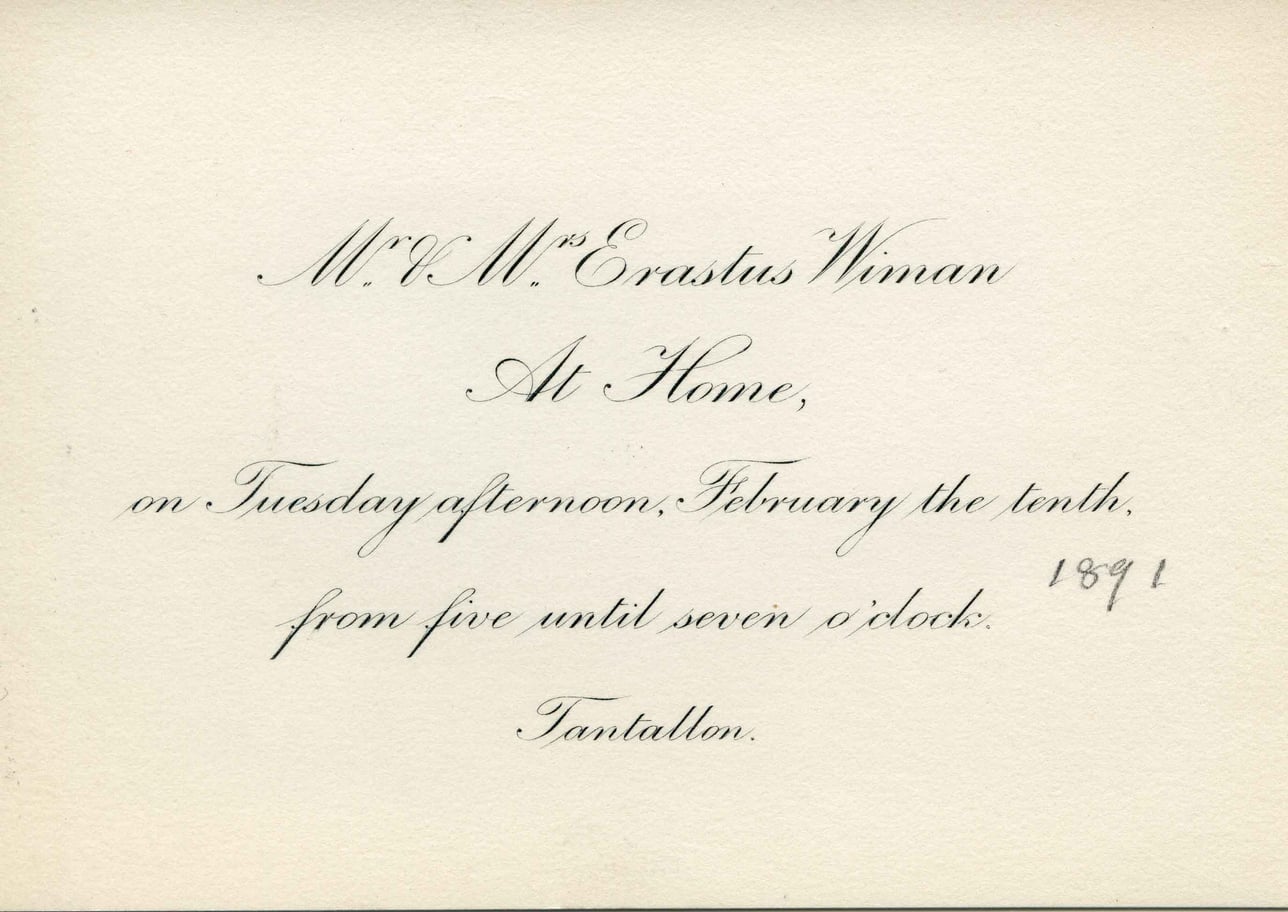 Mr. & Mrs. Erastus Wiman
At Home,
on Tuesday afternoon, February the tenth,
1891
from five until seven o'clock.
Tantallon.